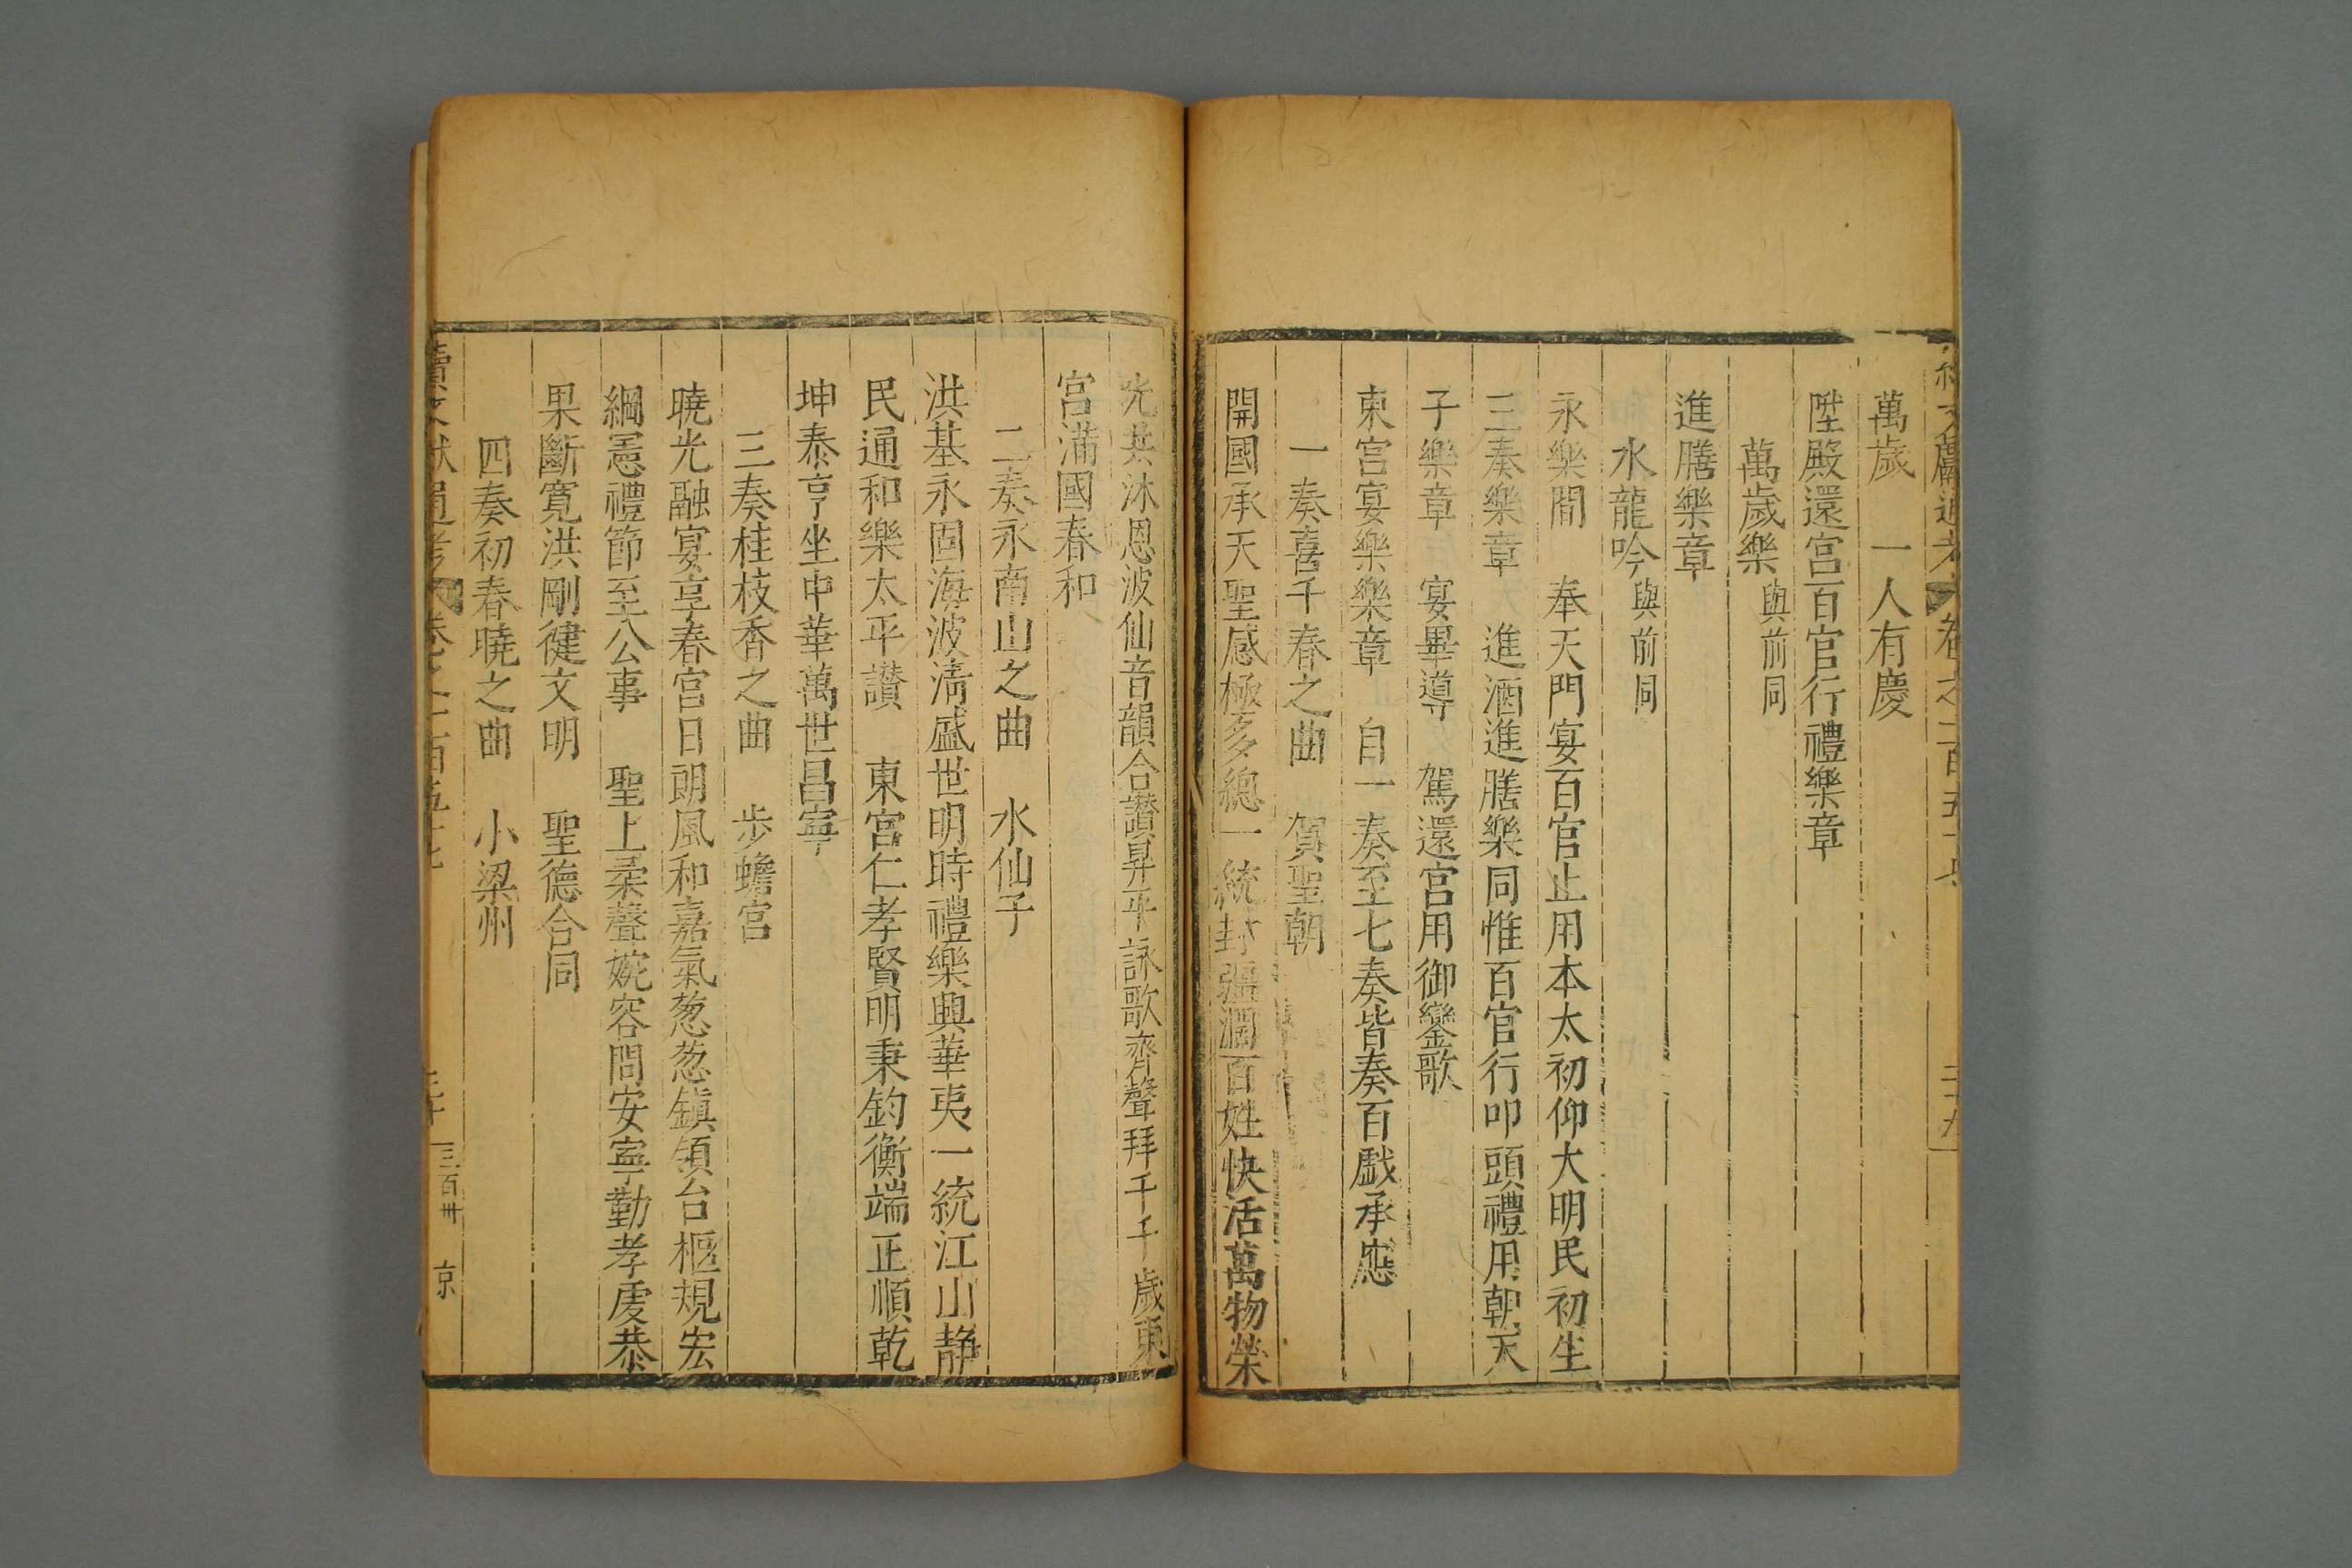 萬歲　一人有慶
陞殿還宮百官行禮樂章
萬歲樂 與前同
進膳樂章
水龍吟 與前同
永樂間　奉天門宴百官止用本太初仰大明民初生
三奏樂章　進酒進膳樂同惟百官行叩頭禮用朝天
子樂章　宴畢導　駕還宮用御鑾歌
東宮宴樂樂章　自一奏至七奏皆奏百戲承應
一奏喜千春之曲　賀聖朝
開國承天聖感極多總一統封疆濶百姓快活萬物榮
光共沐恩波仙音韻合讃昇平詠歌齊聲拜千千歲東
宮滿國春和
二奏永南山之曲　水仙子
洪基永固海波清盛世明時禮樂興華夷一統江山靜
民通和樂太平讃　東宮仁孝賢明秉鈞衡端正順乾
坤泰亨坐中華萬世昌寧
三奏桂枝香之曲　步蟾宮
曉光融宴享春宮日朗風和嘉氣葱葱鎮領台樞規宏
綱憲禮節至公事　聖上柔聲婉容問安寧勤孝虔恭
果斷寬洪剛徤文明　聖德合同
四奏初春曉之曲　小梁州
三百卌　京